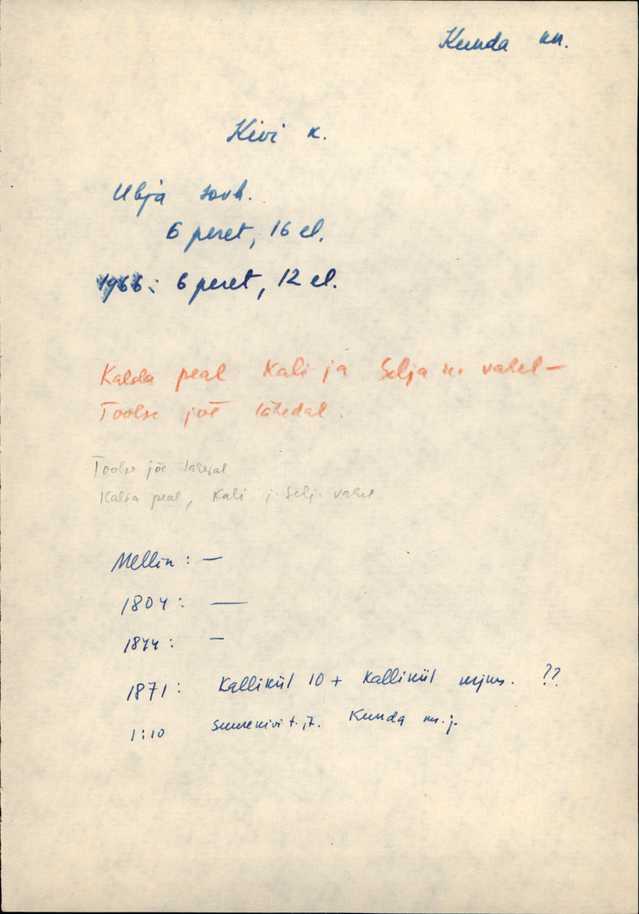 Kunda kn.
Kivi k.
Ubja sovh.
6 peret, 16 el.
1966: 6 peret, 12 el.
Kalda peal Kali ja Selja k. vahel —
Toolse jõe lähedal.
Toolse jõe lähedal
Kalda peal, Kali j. Selj. vahel
Mellin: —
1804: —
1844: —
1871: Kallikül 10 + Kallikül ??
1:10 Suurekivi t. j.t. Kunda m. j.